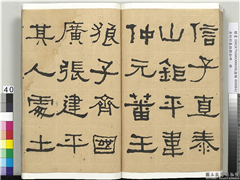 信子直泰
山鉅平韋
仲元蕃王
狼子齊國
廣張建平
其人處士
40